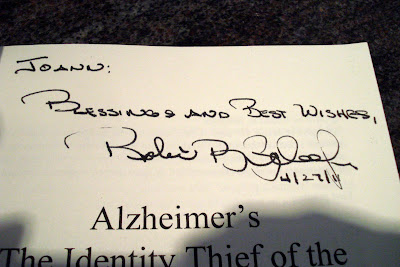 JOANN:
BLESSINGS AND BEST WISHES,
4/27/11
Alzheimer's
The Identity Thief of the